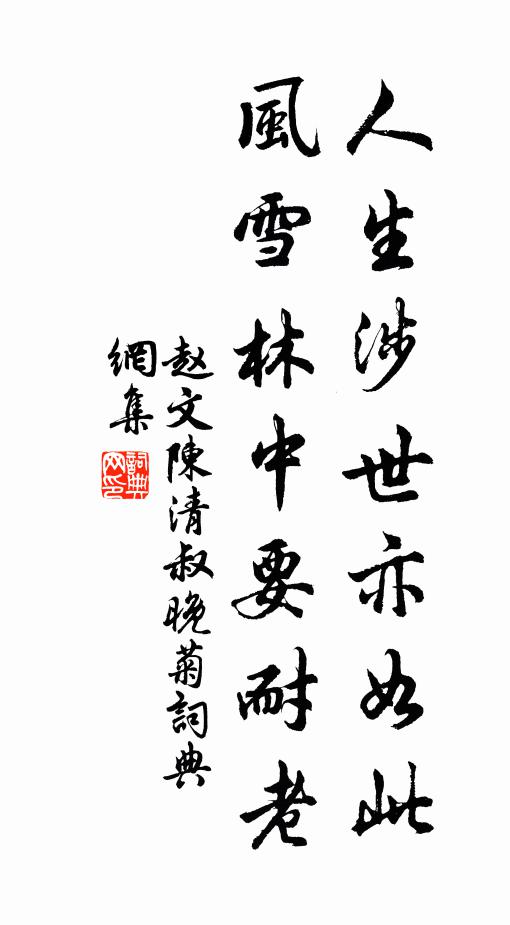 人生涉世亦如此
風雪林中要耐老
赵文陳清叔晚菊詞典
網集
詞典
网印